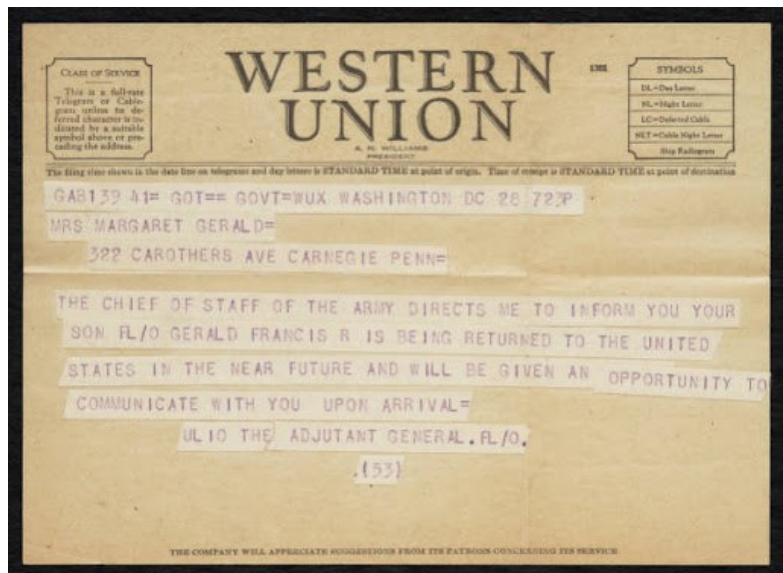 CLASS OF SERVICE
This is a full-rate
Telegram or Cable-
gram unless its de-
ferred character is in-
dicated by a suitable
symbol above or pre-
ceding the address.
WESTERN
UNION
A. N. WILLIAMS
PRESIDENT
1201
SYMBOLS
DL=Day Letter
NL=Night Letter
LC=Deferred Cable
NLT=Cable Night Letter
Ship Radiogram
The filing time shown in the date line on telegrams and day letters is STANDARD TIME at point of origin. Time of receipt is STANDARD TIME at point of destination
GAB139 41= GOT== GOVT=WUX WASHINGTON DC 28 723P
MRS MARGARET GERALD=
322 CAROTHERS AVE CARNEGIE PENN=
THE CHIEF OF STAFF OF THE ARMY DIRECTS ME TO INFORM YOU YOUR
SON FL/O GERALD FRANCIS R IS BEING RETURNED TO THE UNITED
STATES IN THE NEAR FUTURE AND WILL BE GIVEN AN OPPORTUNITY TO
COMMUNICATE WITH YOU UPON ARRIVAL=
ULIO THE ADJUTANT GENERAL.FL/O.
.(53)
THE COMPANY WILL APPRECIATE SUGGESTIONS FROM ITS PATRONS CONCERNING ITS SERVICE